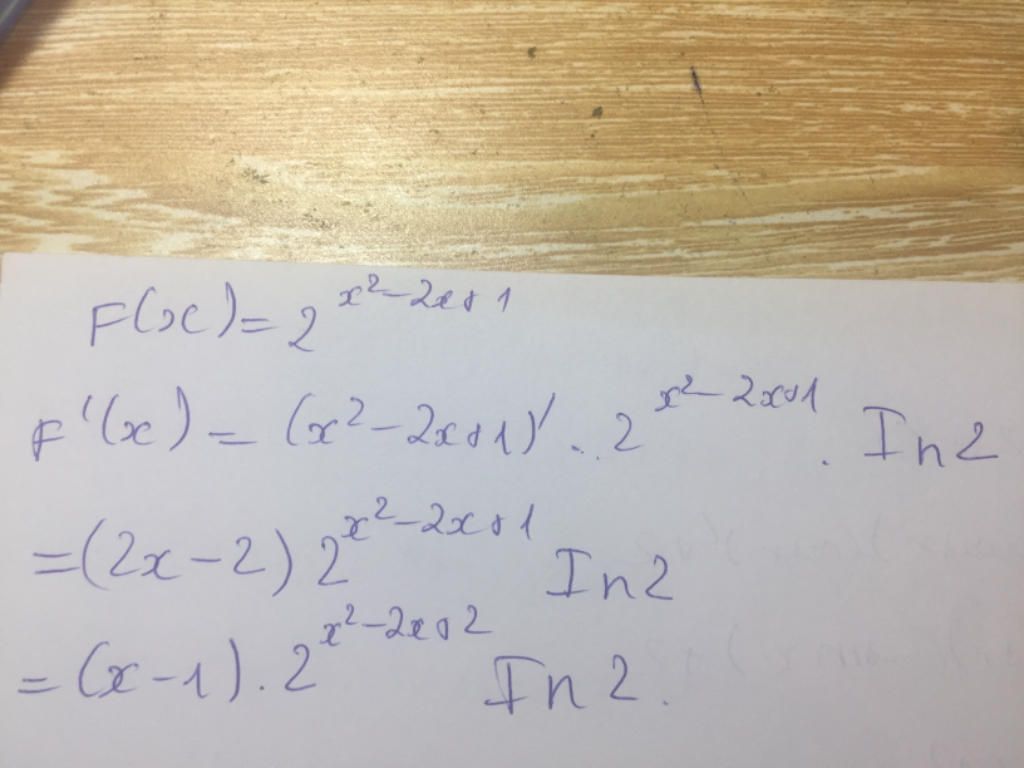 F(x) = 2^{x²-2x+1}
F'(x) = (x²-2x+1)' . 2^{x²-2x+1} . In2
= (2x-2) 2^{x²-2x+1} In2
= (x-1) . 2^{x²-2x+2} In2.